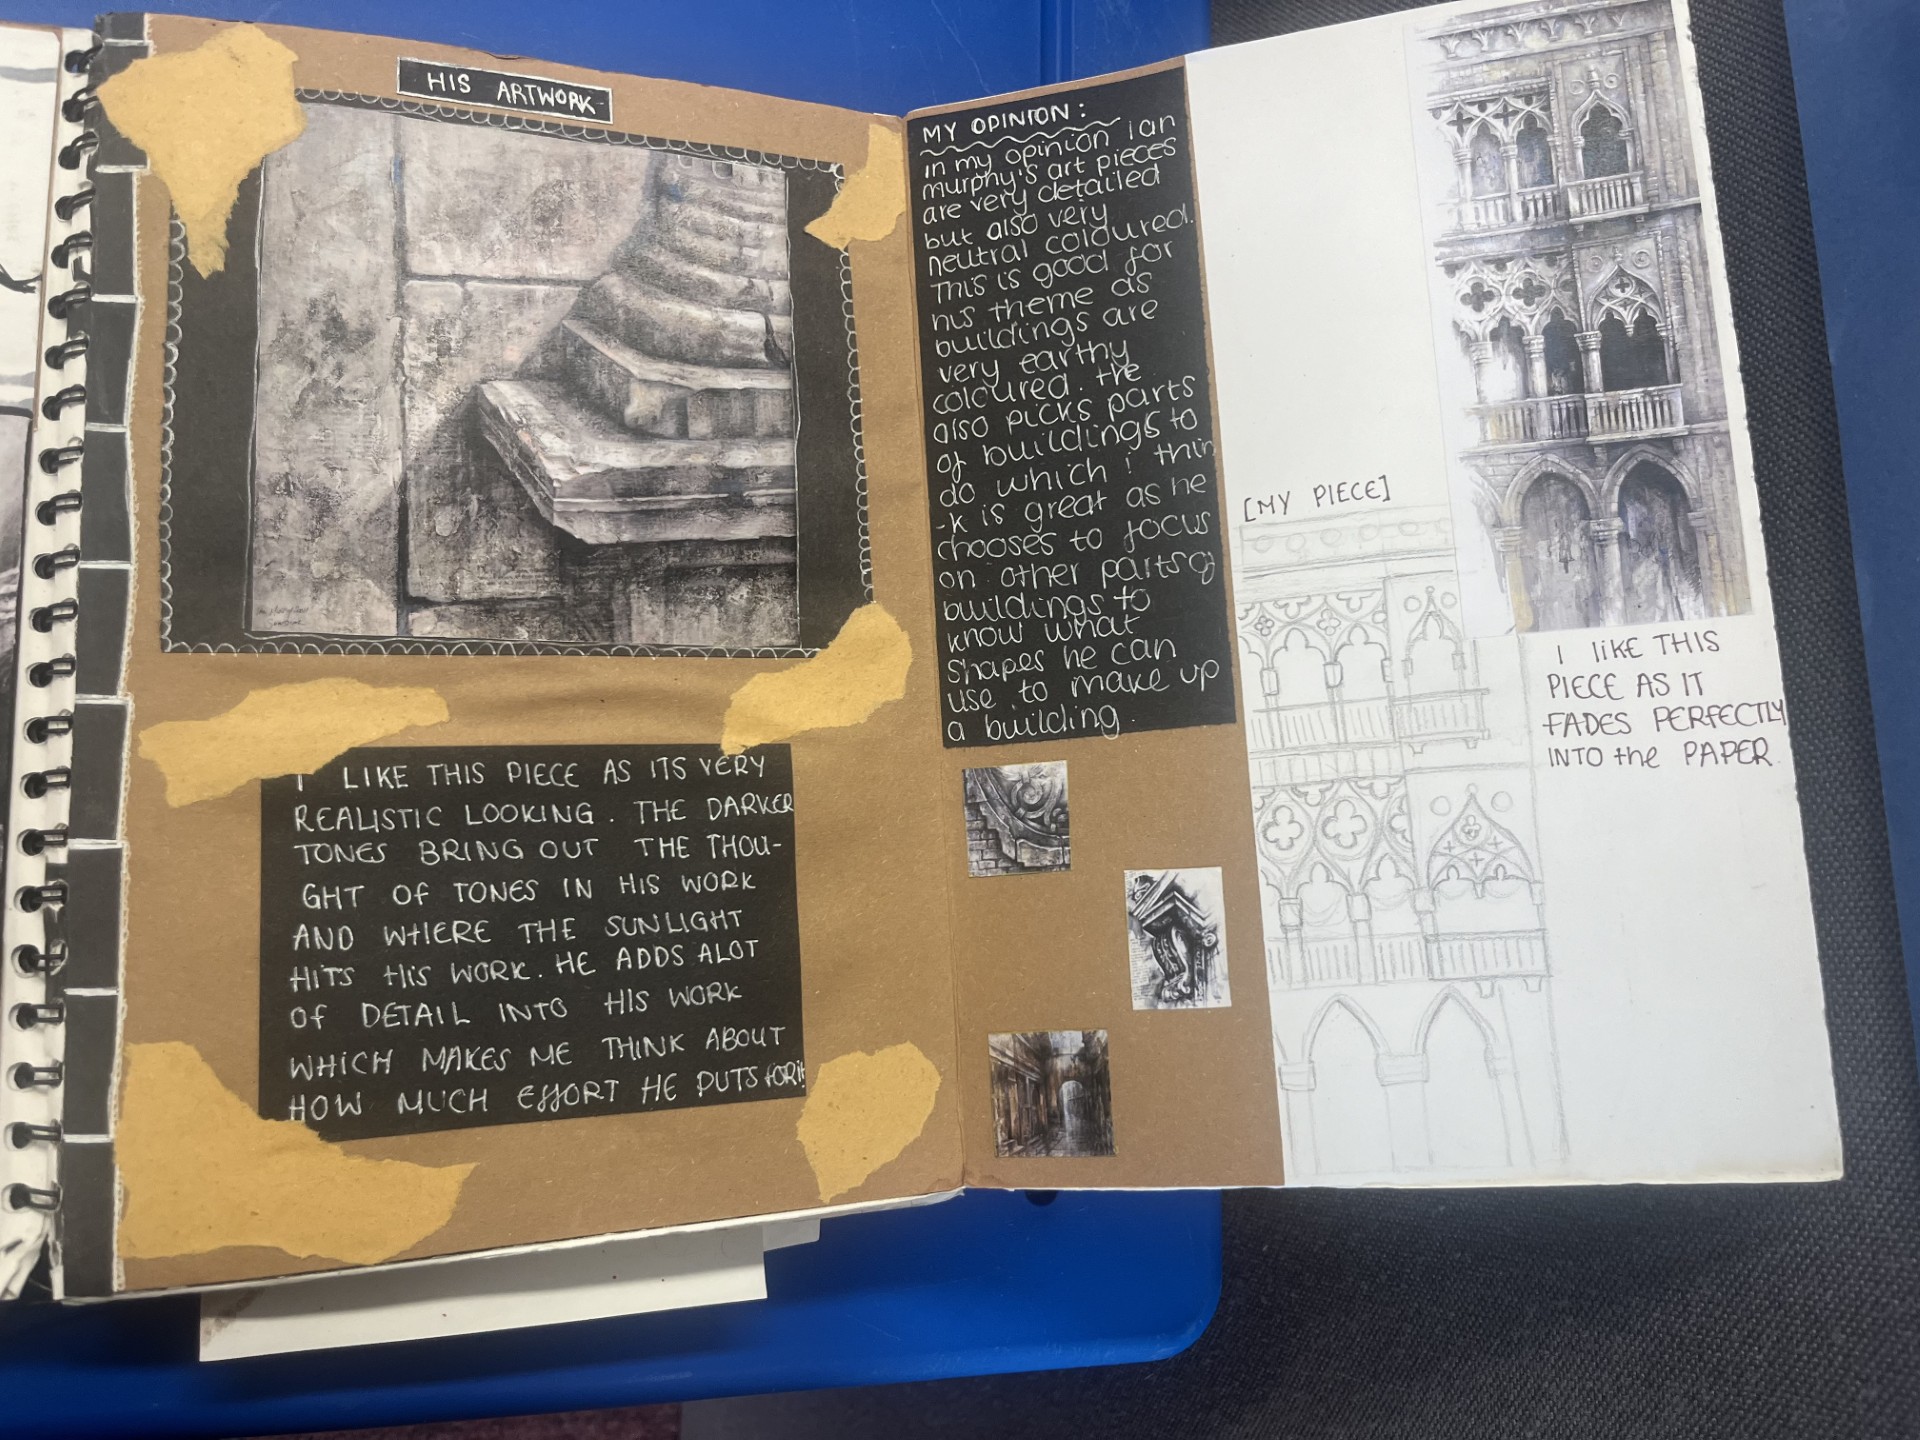 HIS ARTWORK
I LIKE THIS PIECE AS ITS VERY
REALISTIC LOOKING. THE DARKER
TONES BRING OUT THE THOU-
GHT OF TONES IN HIS WORK
AND WHERE THE SUNLIGHT
HITS HIS WORK. HE ADDS ALOT
OF DETAIL INTO HIS WORK
WHICH MAKES ME THINK ABOUT
HOW MUCH EFFORT HE PUTS FORit
MY OPINION:
in my opinion ian
murphy's art pieces
are very detailed
but also very
neutral coloured.
This is good for
his theme as
buildings are
very earthy
coloured. He
also picks parts
of buildings to
do which i thin
-k is great as he
chooses to focus
on other parts of
buildings to
know what
shapes he can
use to make up
a building.
[MY PIECE]
I liKE THIS
PIECE AS IT
FADES PERFECTLY
INTO the PAPER.